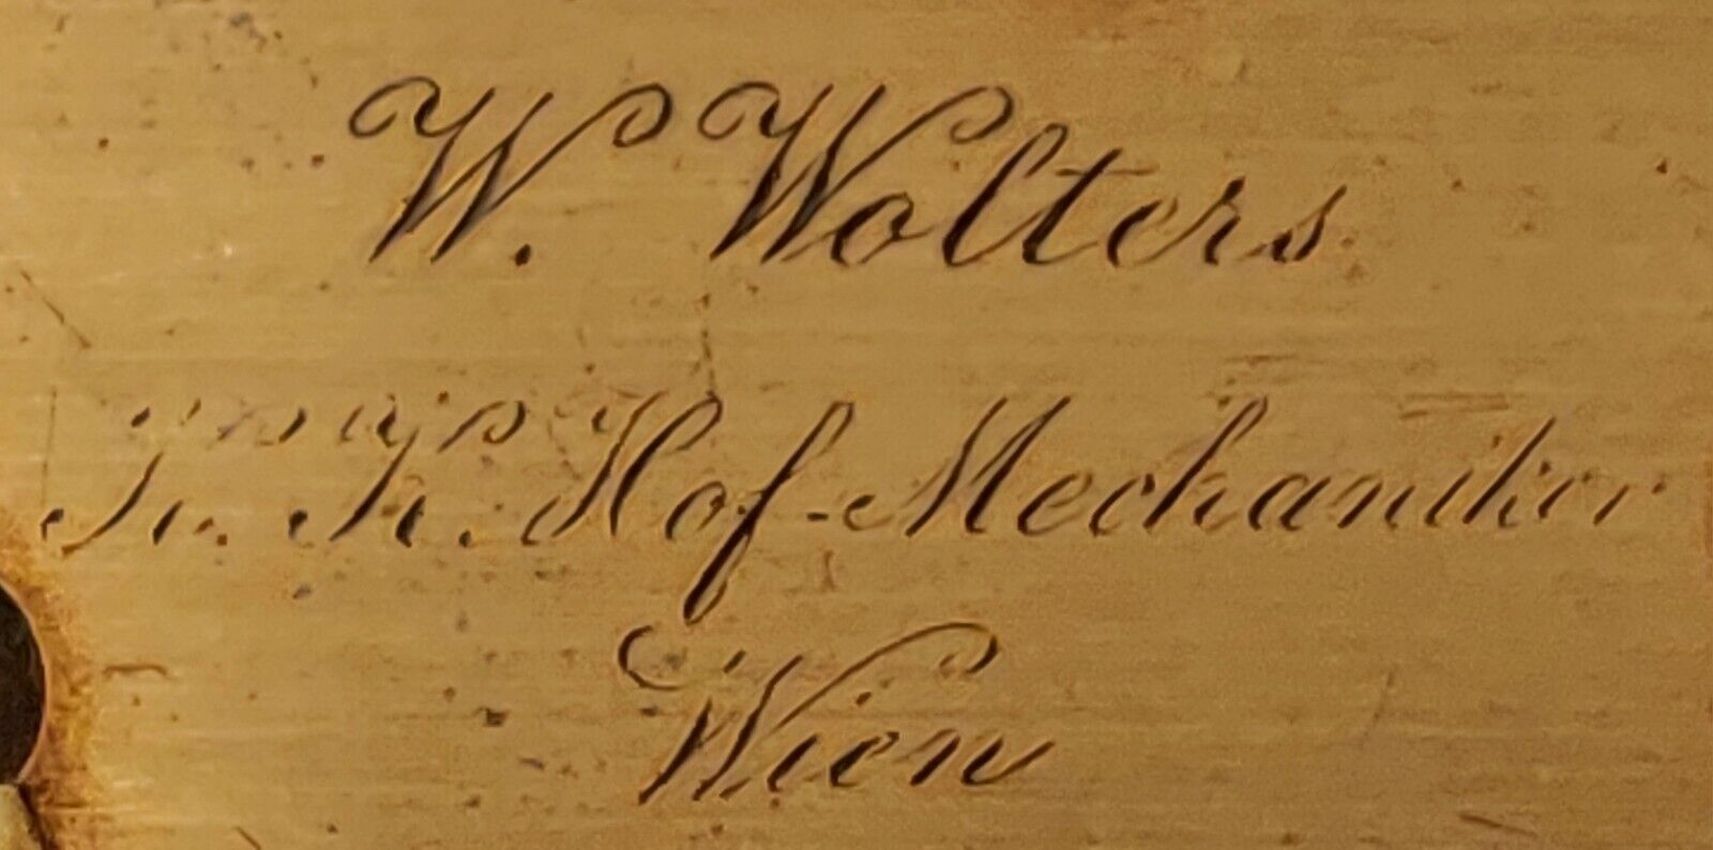 W. Wolters
K. K. Hof-Mechaniker
Wien